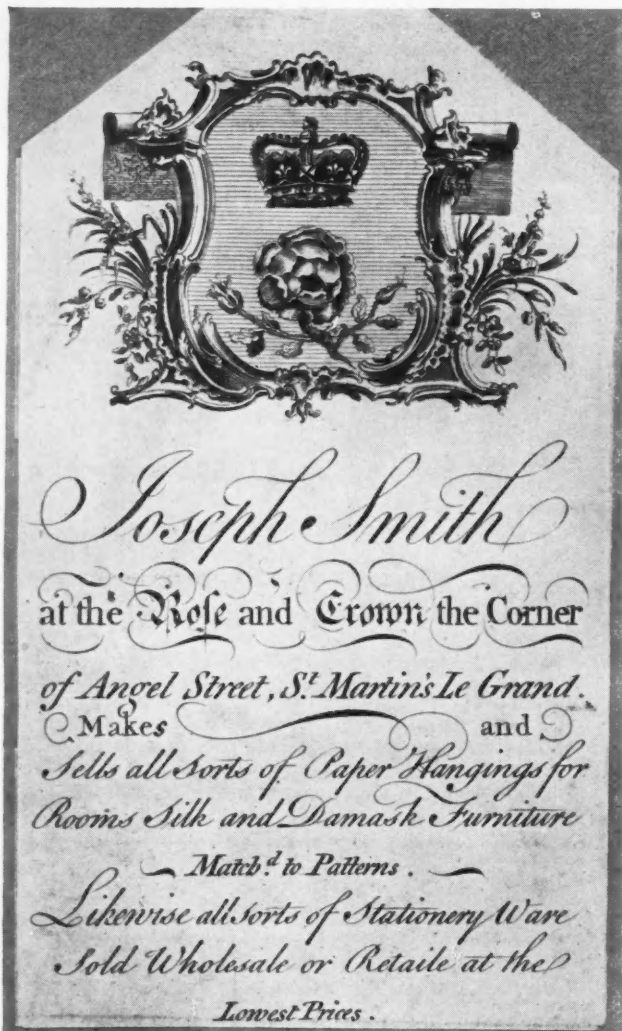 Joseph Smith
at the Rose and Crown the Corner
of Angel Street, St. Martin's Le Grand.
Makes and
Sells all sorts of Paper Hangings for
Rooms Silk and Damask Furniture
Match'd to Patterns.
Likewise all sorts of Stationery Ware
Sold Wholesale or Retaile at the
Lowest Prices.